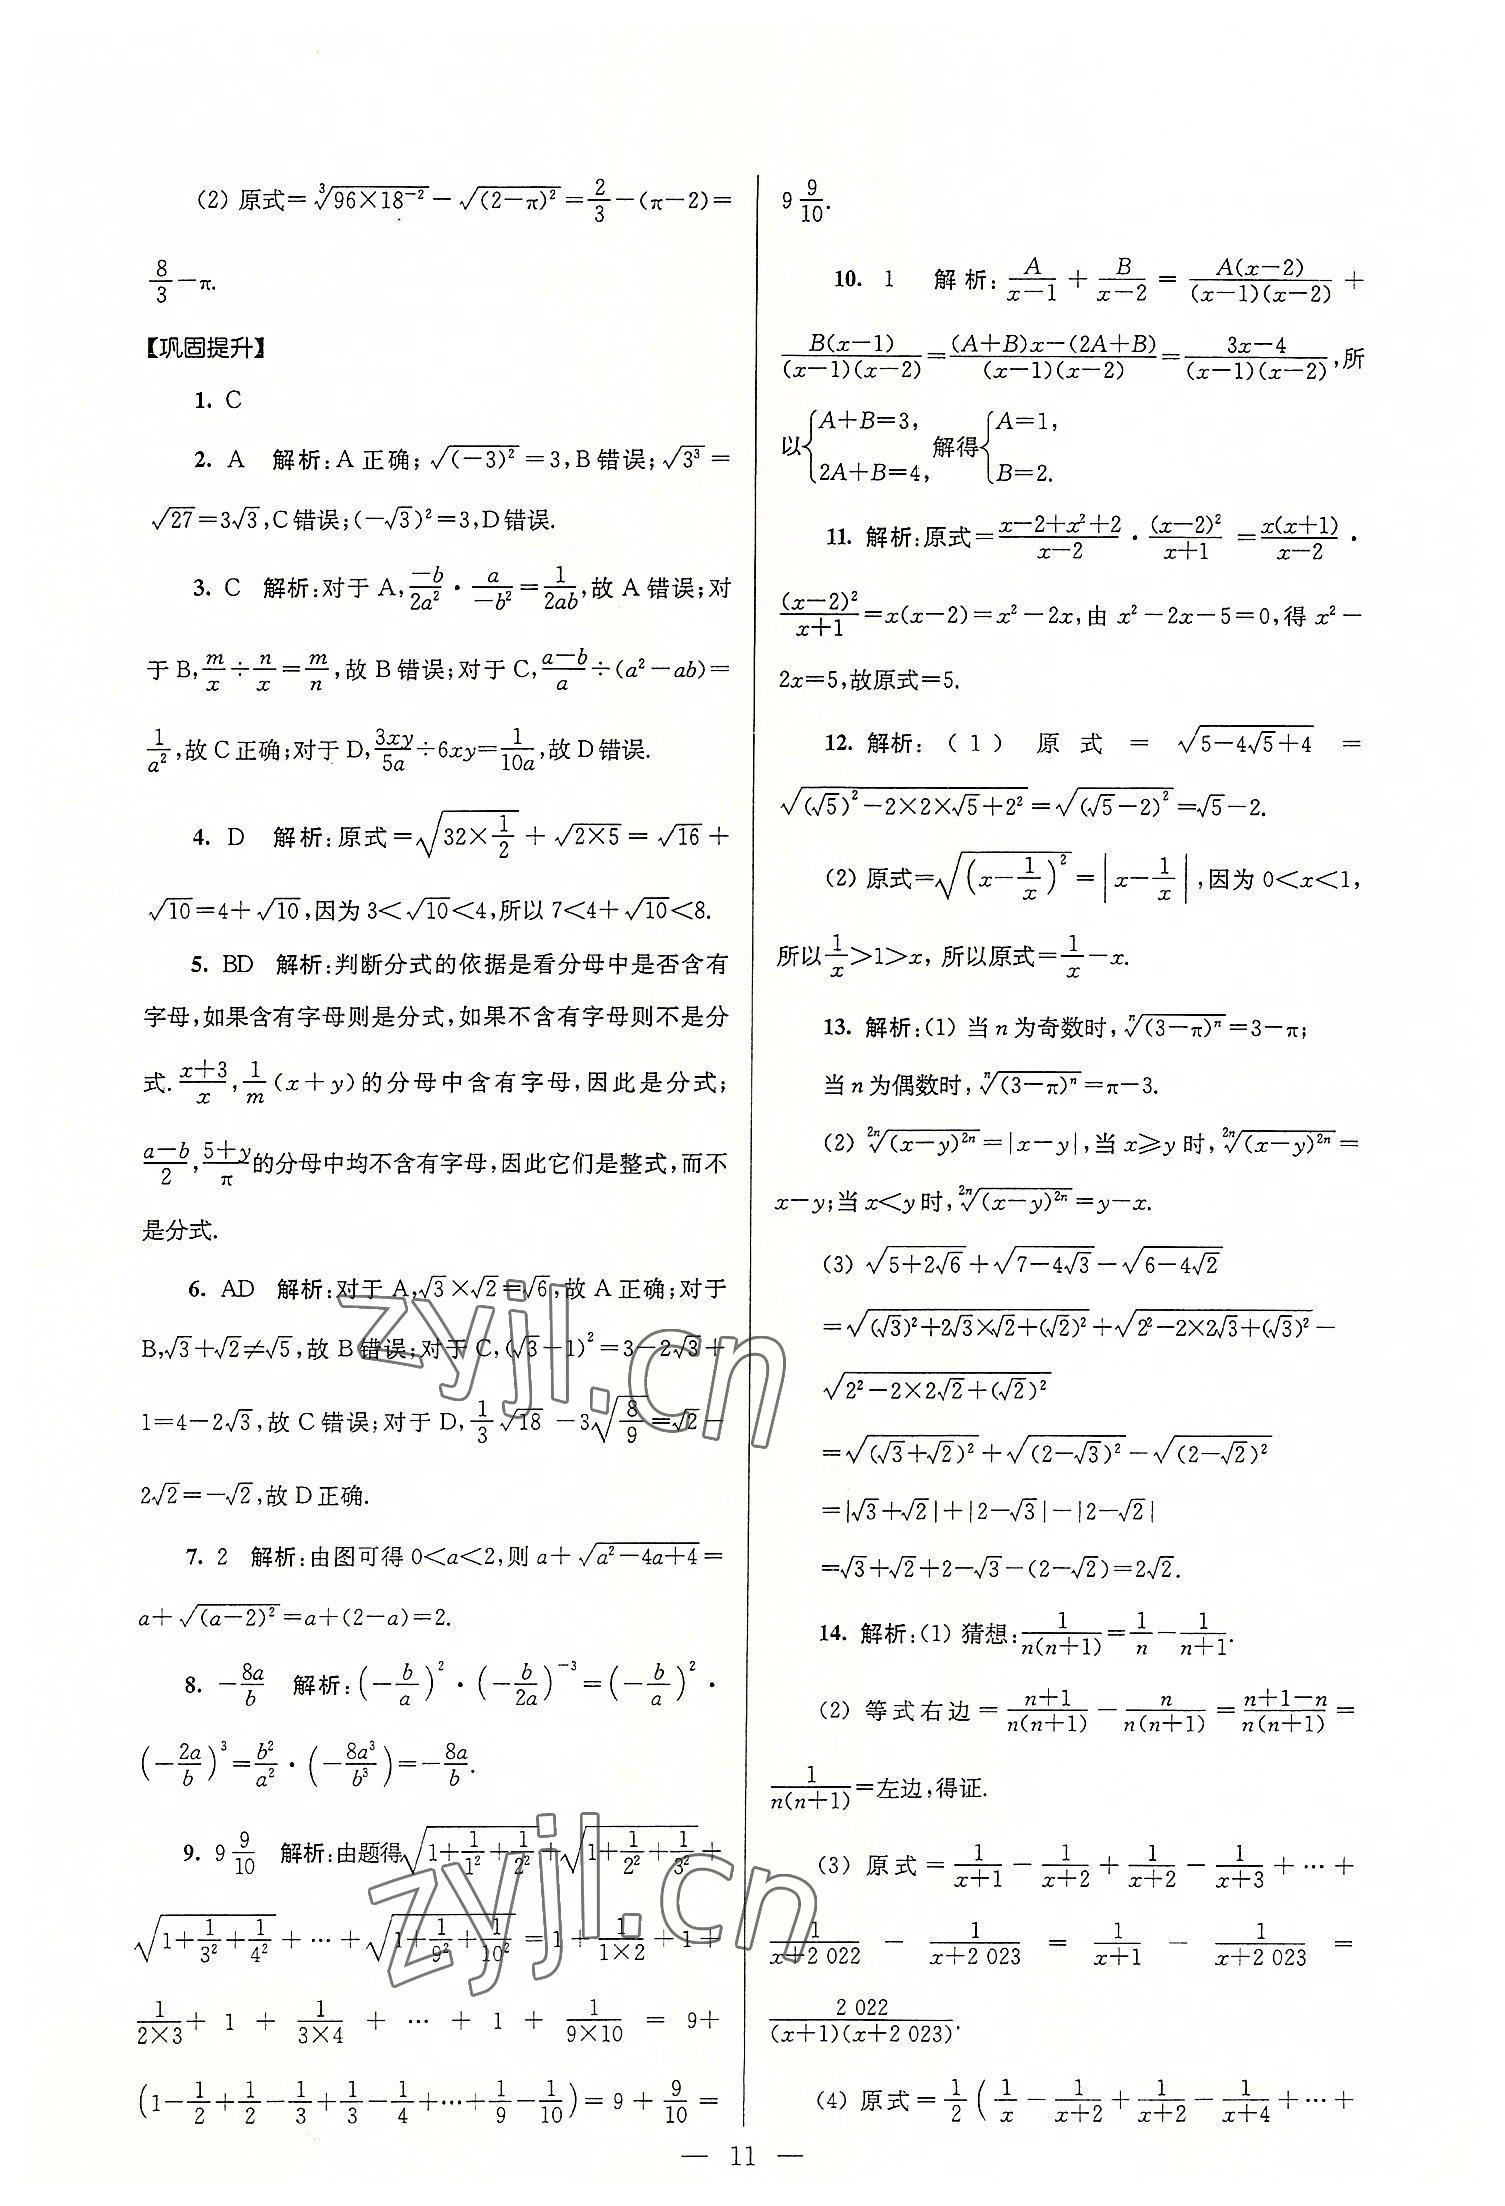 (2) 原式=∛(96×18⁻²)−√((2−π)²)=2/3−(π−2)=
8/3−π.
【巩固提升】
1. C
2. A 解析:A正确;√((−3)²)=3,B错误;√(3³)=
√27=3√3,C错误;(−√3)²=3,D错误.
3. C 解析:对于A,−b/2a²·a/−b²=1/2ab,故A错误;对
于B,m/x÷n/x=m/n,故B错误;对于C,(a−b)/a÷(a²−ab)=
1/a²,故C正确;对于D,3xy/5a÷6xy=1/10a,故D错误.
4. D 解析:原式=√(32×1/2)+√(2×5)=√16+
√10=4+√10,因为3<√10<4,所以7<4+√10<8.
5. BD 解析:判断分式的依据是看分母中是否含有
字母,如果含有字母则是分式,如果不含有字母则不是分
式.(x+3)/x,1/m(x+y)的分母中含有字母,因此是分式;
(a−b)/2,(5+y)/π的分母中均不含有字母,因此它们是整式,而不
是分式.
6. AD 解析:对于A,√3×√2=√6,故A正确;对于
B,√3+√2≠√5,故B错误;对于C,(√3−1)²=3−2√3+
1=4−2√3,故C错误;对于D,1/3√18−3√(8/9)=√2−
2√2=−√2,故D正确.
7. 2 解析:由图可得0<a<2,则a+√(a²−4a+4)=
a+√((a−2)²)=a+(2−a)=2.
8. −8a/b 解析:(−b/a)²·(−b/2a)⁻³=(−b/a)²·
(−2a/b)³=b²/a²·(−8a³/b³)=−8a/b.
9. 9 9/10 解析:由题得√(1+1/1²+1/2²)+√(1+1/2²+1/3²)+
√(1+1/3²+1/4²)+⋯+√(1+1/9²+1/10²)=1+1/(1×2)+1+
1/(2×3)+1+1/(3×4)+⋯+1+1/(9×10)=9+
(1−1/2+1/2−1/3+1/3−1/4+⋯+1/9−1/10)=9+9/10=
9 9/10.
10. 1 解析:A/(x−1)+B/(x−2)=A(x−2)/((x−1)(x−2))+
B(x−1)/((x−1)(x−2))=((A+B)x−(2A+B))/((x−1)(x−2))=(3x−4)/((x−1)(x−2)),所
以{A+B=3, 2A+B=4, 解得{A=1, B=2.
11. 解析:原式=(x−2+x²+2)/(x−2)·(x−2)²/(x+1)=x(x+1)/(x−2)·
(x−2)²/(x+1)=x(x−2)=x²−2x,由x²−2x−5=0,得x²−
2x=5,故原式=5.
12. 解析:(1)原式=√(5−4√5+4)=
√((√5)²−2×2×√5+2²)=√((√5−2)²)=√5−2.
(2) 原式=√((x−1/x)²)=|x−1/x|,因为0<x<1,
所以1/x>1>x,所以原式=1/x−x.
13. 解析:(1) 当n为奇数时,ⁿ√((3−π)ⁿ)=3−π;
当n为偶数时,ⁿ√((3−π)ⁿ)=π−3.
(2) ²ⁿ√((x−y)²ⁿ)=|x−y|,当x⩾y时,²ⁿ√((x−y)²ⁿ)=
x−y;当x<y时,²ⁿ√((x−y)²ⁿ)=y−x.
(3) √(5+2√6)+√(7−4√3)−√(6−4√2)
=√((√3)²+2√3×√2+(√2)²)+√(2²−2×2√3+(√3)²)−
√(2²−2×2√2+(√2)²)
=√((√3+√2)²)+√((2−√3)²)−√((2−√2)²)
=|√3+√2|+|2−√3|−|2−√2|
=√3+√2+2−√3−(2−√2)=2√2.
14. 解析:(1) 猜想:1/(n(n+1))=1/n−1/(n+1).
(2) 等式右边=(n+1)/(n(n+1))−n/(n(n+1))=(n+1−n)/(n(n+1))=
1/(n(n+1))=左边,得证.
(3) 原式=1/(x+1)−1/(x+2)+1/(x+2)−1/(x+3)+⋯+
1/(x+2 022)−1/(x+2 023)=1/(x+1)−1/(x+2 023)=
2 022/((x+1)(x+2 023)).
(4) 原式=1/2(1/x−1/(x+2)+1/(x+2)−1/(x+4)+⋯+
— 11 —
zyjl.cn
zyjl.cn